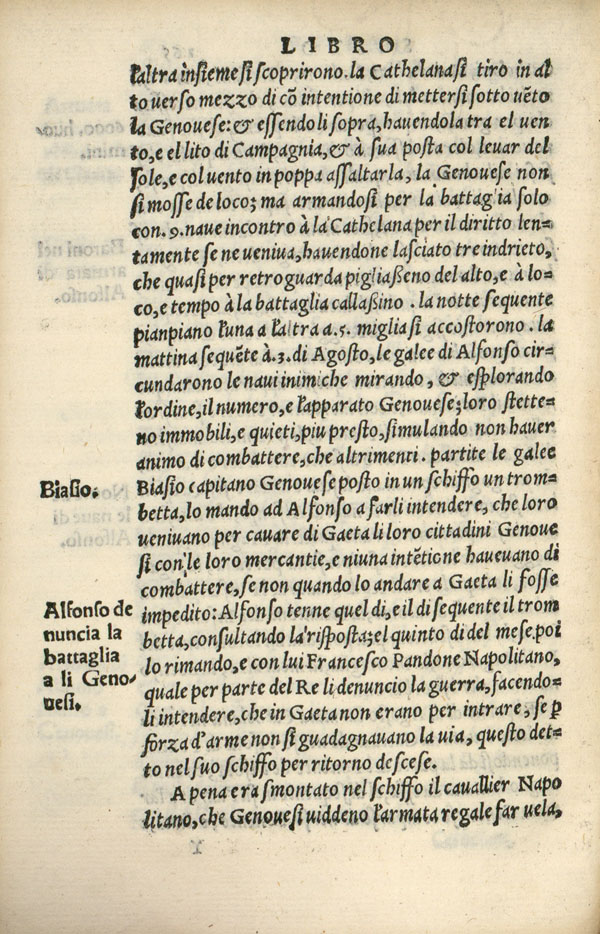 LIBRO
l'altra insieme si scoprirono. la Cathelana si tiro in al
to uerso mezzo di cō intentione di mettersi sotto uēto
la Genouese: & essendoli sopra, hauendola tra el uen
to, e el lito di Campagnia, & à sua posta col leuar del
sole, e col uento in poppa assaltarla, la Genouese non
si mosse de loco; ma armandosi per la battaglia solo
con. 9. naue incontro à la Cathelana per il diritto len-
tamente se ne ueniua, hauendone lasciato tre indrieto,
che quasi per retroguarda pigliaßeno del alto, e à lo-
co, e tempo à la battaglia callaßino. la notte sequente
pianpiano l'una a l'altra a. 5. miglia si accostorono. la
mattina sequēte à. 3. di Agosto, le galee di Alfonso cir-
cundarono le naui inimiche mirando, & esplorando
l'ordine, il numero, e l'apparato Genouese; loro stette-
no immobili, e quieti, piu presto, simulando non hauer
animo di combattere, che altrimenti. partite le galee
Biasio.
Biasio capitano Genouese posto in un schiffo un trom-
betta, lo mando ad Alfonso a farli intendere, che loro
ueniuano per cauare di Gaeta li loro cittadini Genoue
si con le loro mercantie, e niuna intētione haueuano di
combattere, se non quando lo andare a Gaeta li fosse
Alfonso de
nuncia la
battaglia
a li Geno-
uesi.
impedito: Alfonso tenne quel di, e il di sequente il trom
betta, consultando la risposta; el quinto di del mese poi
lo rimando, e con lui Francesco Pandone Napolitano,
quale per parte del Re li denuncio la guerra, facendo-
li intendere, che in Gaeta non erano per intrare, se ꝑ
forza d'arme non si guadagnauano la uia, questo det-
to nel suo schiffo per ritorno descese.
A pena era smontato nel schiffo il cauallier Napo
litano, che Genouesi uiddeno l'armata regale far uela,